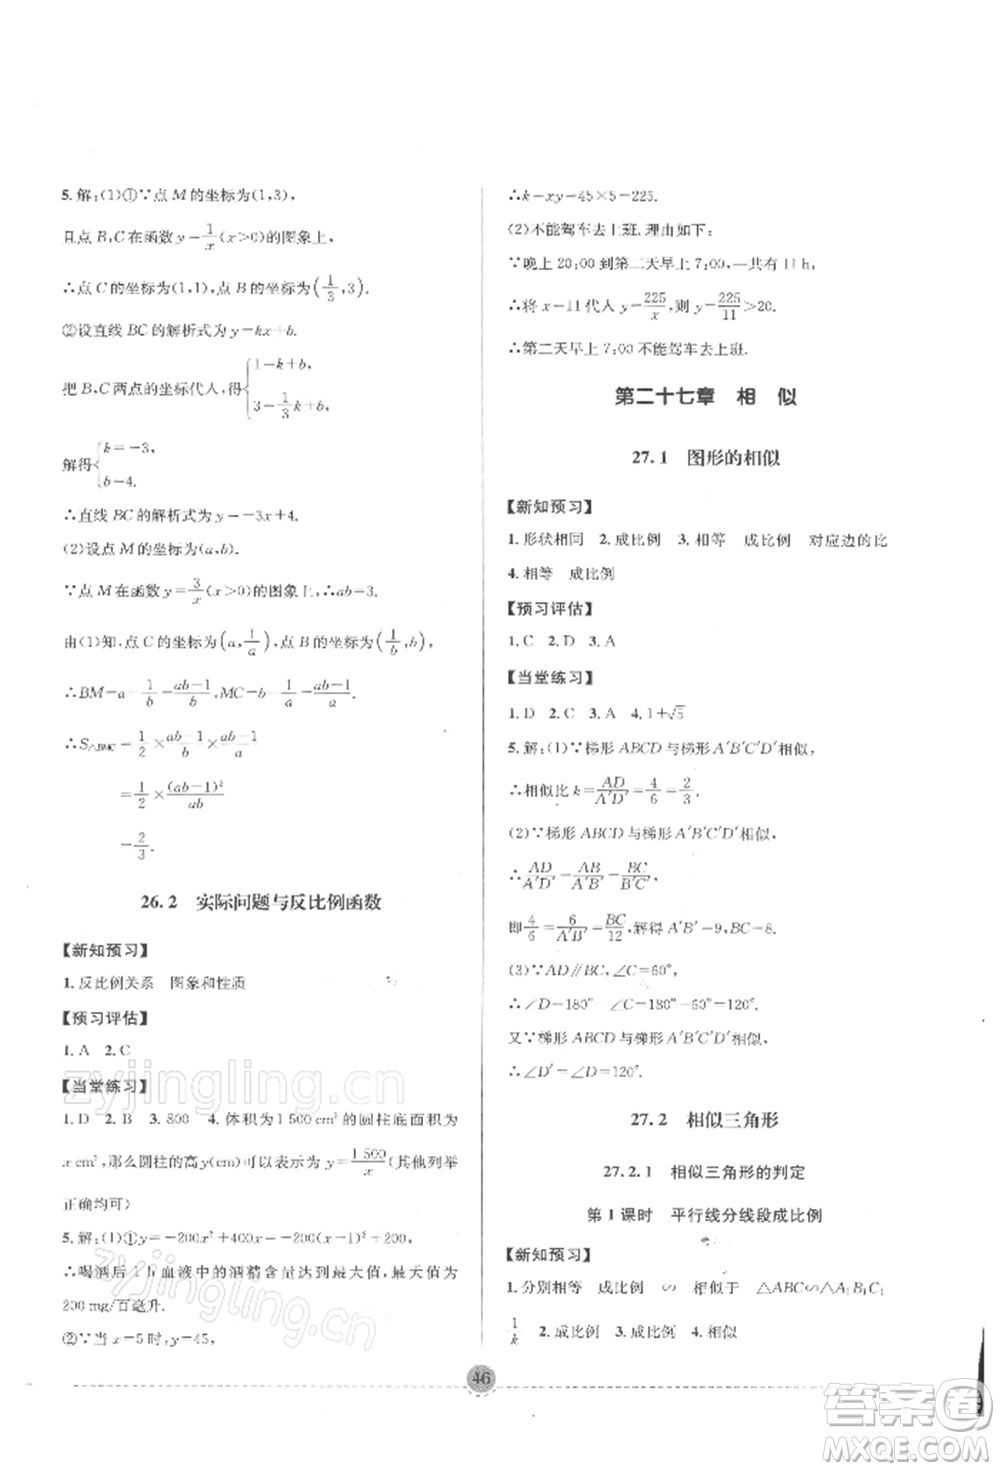 5.解:(1)①∵点 M 的坐标为(1,3),
且点 B,C 在函数 y=1/x(x>0)的图象上,
∴点 C 的坐标为(1,1),点 B 的坐标为(1/3,3).
②设直线 BC 的解析式为 y=kx+b.
把 B,C 两点的坐标代入,得{1=k+b, 3=1/3k+b,
解得{k=-3, b=4.
∴直线 BC 的解析式为 y=-3x+4.
(2)设点 M 的坐标为(a,b).
∵点 M 在函数 y=3/x(x>0)的图象上,∴ab=3.
由(1)知,点 C 的坐标为(a,1/a),点 B 的坐标为(1/b,b),
∴BM=a-1/b=(ab-1)/b,MC=b-1/a=(ab-1)/a.
∴S△BMC=1/2×(ab-1)/b×(ab-1)/a
=1/2×(ab-1)²/ab
=2/3.
26.2 实际问题与反比例函数
【新知预习】
1.反比例关系 图象和性质
【预习评估】
1.A 2.C
【当堂练习】
1.D 2.B 3.800 4.体积为1 500 cm³的圆柱底面积为
x cm²,那么圆柱的高 y(cm)可以表示为 y=1 500/x(其他列举
正确均可)
5.解:(1)①y=-200x²+400x=-200(x-1)²+200,
∴喝酒后 1 h 血液中的酒精含量达到最大值,最大值为
200 mg/百毫升.
②∵当 x=5 时,y=45,
∴k=xy=45×5=225.
(2)不能驾车去上班.理由如下:
∵晚上 20:00 到第二天早上 7:00,一共有 11 h,
∴将 x=11 代入 y=225/x,则 y=225/11>20.
∴第二天早上 7:00 不能驾车去上班.
第二十七章 相 似
27.1 图形的相似
【新知预习】
1.形状相同 2.成比例 3.相等 成比例 对应边的比
4.相等 成比例
【预习评估】
1.C 2.D 3.A
【当堂练习】
1.D 2.C 3.A 4.1+√5
5.解:(1)∵梯形 ABCD 与梯形 A′B′C′D′相似,
∴相似比 k=AD/A′D′=4/6=2/3.
(2)∵梯形 ABCD 与梯形 A′B′C′D′相似,
∴AD/A′D′=AB/A′B′=BC/B′C′.
即4/6=6/A′B′=BC/12,解得 A′B′=9,BC=8.
(3)∵AD∥BC,∠C=60°,
∴∠D=180°-∠C=180°-60°=120°.
又∵梯形 ABCD 与梯形 A′B′C′D′相似,
∴∠D′=∠D=120°.
27.2 相似三角形
27.2.1 相似三角形的判定
第 1 课时 平行线分线段成比例
【新知预习】
1.分别相等 成比例 ∽ 相似于 △ABC∽△A₁B₁C₁
1/k 2.成比例 3.成比例 4.相似
46
zyjingling.cn
zyjingling.cn
答案圈
MXQE.COM